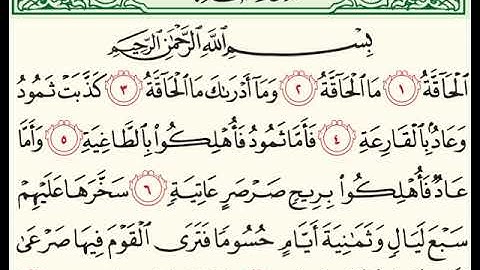 بِسْمِ اللَّهِ الرَّحْمَٰنِ الرَّحِيمِ
الْحَاقَّةُ ١ مَا الْحَاقَّةُ ٢ وَمَا أَدْرَاكَ مَا الْحَاقَّةُ ٣ كَذَّبَتْ ثَمُودُ
وَعَادٌ بِالْقَارِعَةِ ٤ فَأَمَّا ثَمُودُ فَأُهْلِكُوا بِالطَّاغِيَةِ ٥ وَأَمَّا
عَادٌ فَأُهْلِكُوا بِرِيحٍ صَرْصَرٍ عَاتِيَةٍ ٦ سَخَّرَهَا عَلَيْهِمْ
سَبْعَ لَيَالٍ وَثَمَانِيَةَ أَيَّامٍ حُسُومًا فَتَرَى الْقَوْمَ فِيهَا صَرْعَىٰ